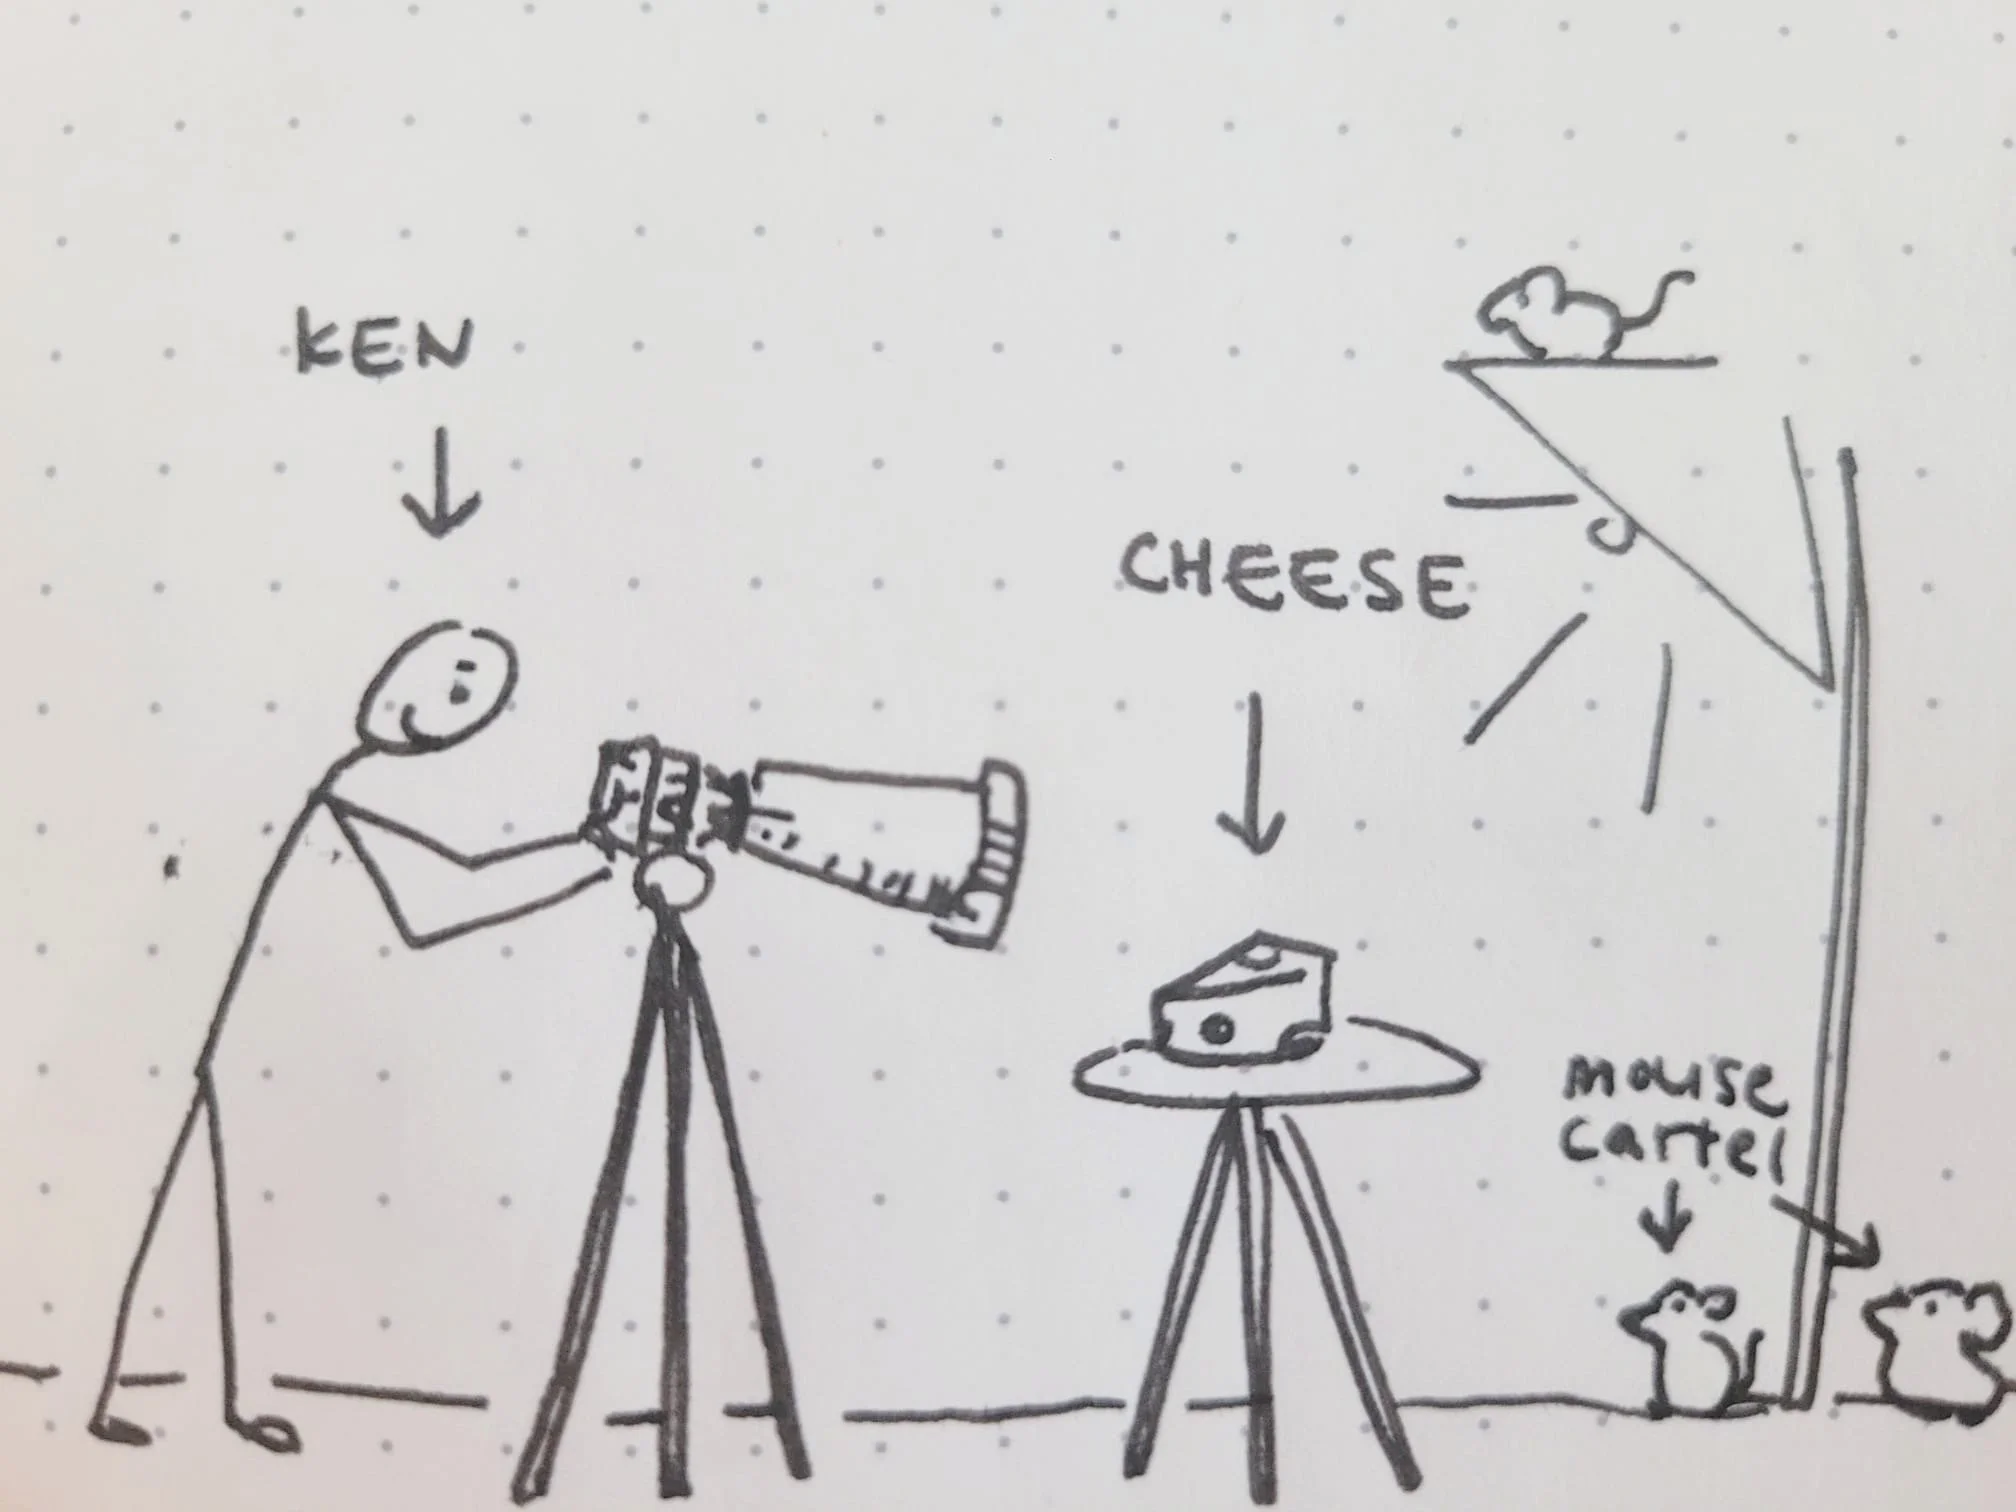 KEN
CHEESE
mouse
cartel